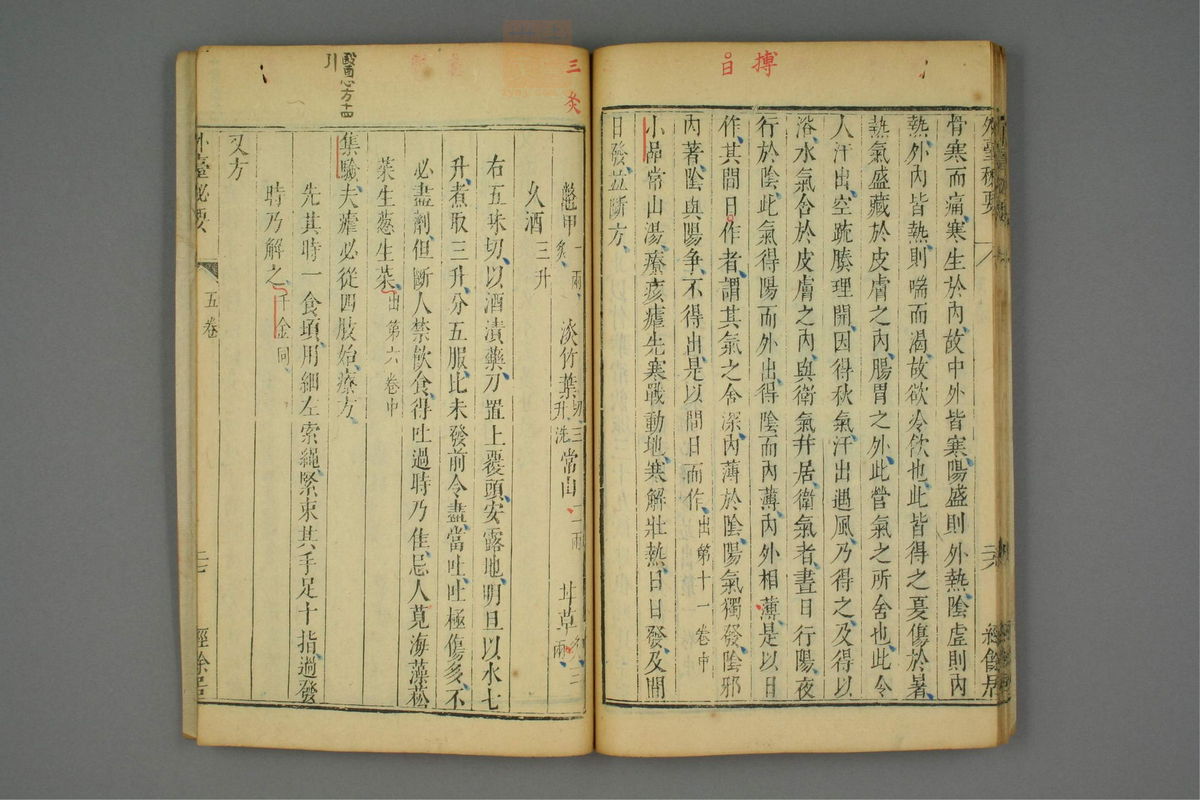 搏
日
外臺秘要
經餘居
骨寒而痛寒生於內故中外皆寒陽盛則外熱陰虛則內
熱外內皆熱則喘而渴故欲冷飲也此皆得之夏傷於暑
熱氣盛藏於皮膚之內腸胃之外此營氣之所舍也此令
人汗出空疏腠理開因得秋氣汗出遇風乃得之及得以
浴水氣舍於皮膚之內與衛氣并居衛氣者晝日行陽夜
行於陰此氣得陽而外出得陰而內薄內外相薄是以日
作其間日作者謂其氣之舍深內薄於陰陽氣獨發陰邪
內著陰與陽爭不得出是以間日而作出第十一卷中
小品常山湯療痎瘧先寒戰動地寒解壯熱日日發及間
日發並斷方
三 炙
鱉甲一兩炙 淡竹葉切三升洗 常山三兩 甘草炙三兩
久酒三升
右五珠切以酒漬藥刀置上覆頭安露地明旦以水七
升煮取三升分五服比未發前令盡當吐吐極傷多不
必盡劑但斷人禁飲食得吐過時乃佳忌人莧海藻菘
菜生葱生菜出第六卷中
醫心方十四
引
集驗夫瘧必從四肢始療方
先其時一食頃用細左索繩緊束其手足十指過發
時乃解之千金同
又方
外臺秘要
五卷
經餘居